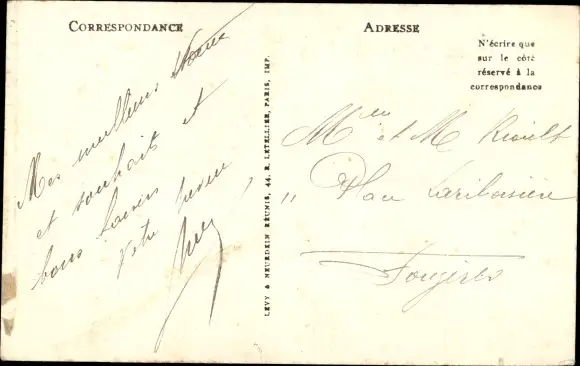 CORRESPONDANCE
Mes meilleurs vœux
et souhaits et
bons baisers
Votre neveu
LEVY & NEURDEIN RÉUNIS, 44, R. LETELLIER, PARIS, IMP.
ADRESSE
N'écrire que
sur le côté
réservé à la
correspondance
et M
,, Place Lariboisière
Fougères